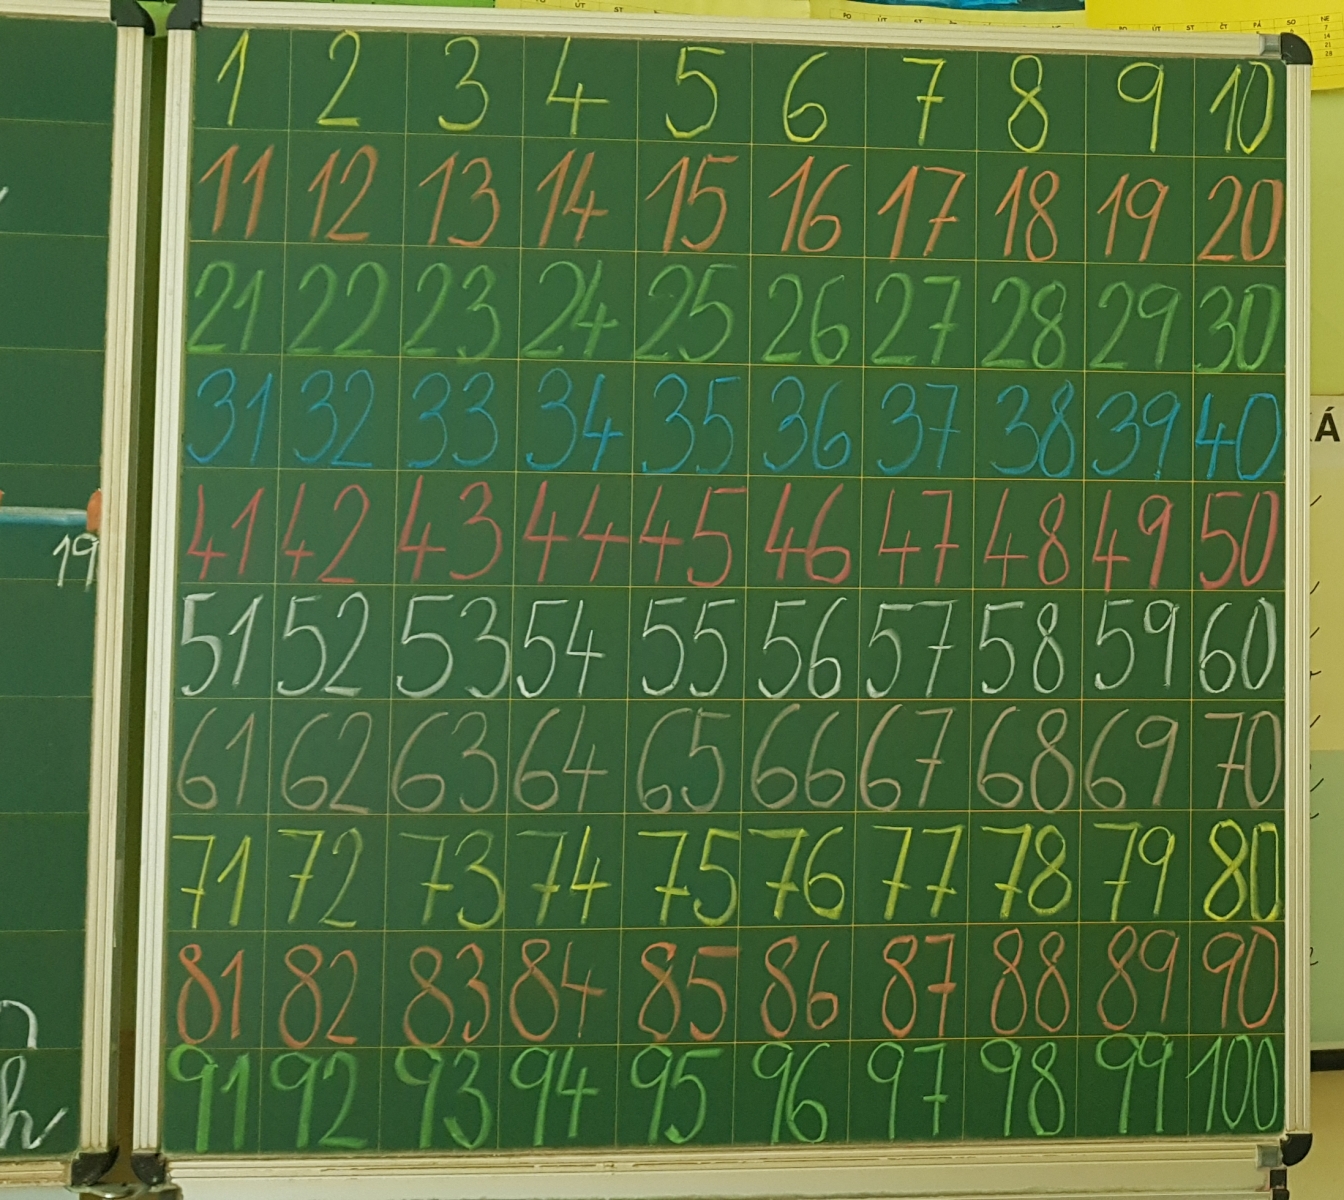 PO ÚT ST
PO ÚT ST
PO ÚT ST ČT PÁ SO NE
7
14
21
28
1 2 3 4 5 6 7 8 9 10
11 12 13 14 15 16 17 18 19 20
21 22 23 24 25 26 27 28 29 30
31 32 33 34 35 36 37 38 39 40
Á
41 42 43 44 45 46 47 48 49 50
19
51 52 53 54 55 56 57 58 59 60
61 62 63 64 65 66 67 68 69 70
71 72 73 74 75 76 77 78 79 80
81 82 83 84 85 86 87 88 89 90
91 92 93 94 95 96 97 98 99 100
h